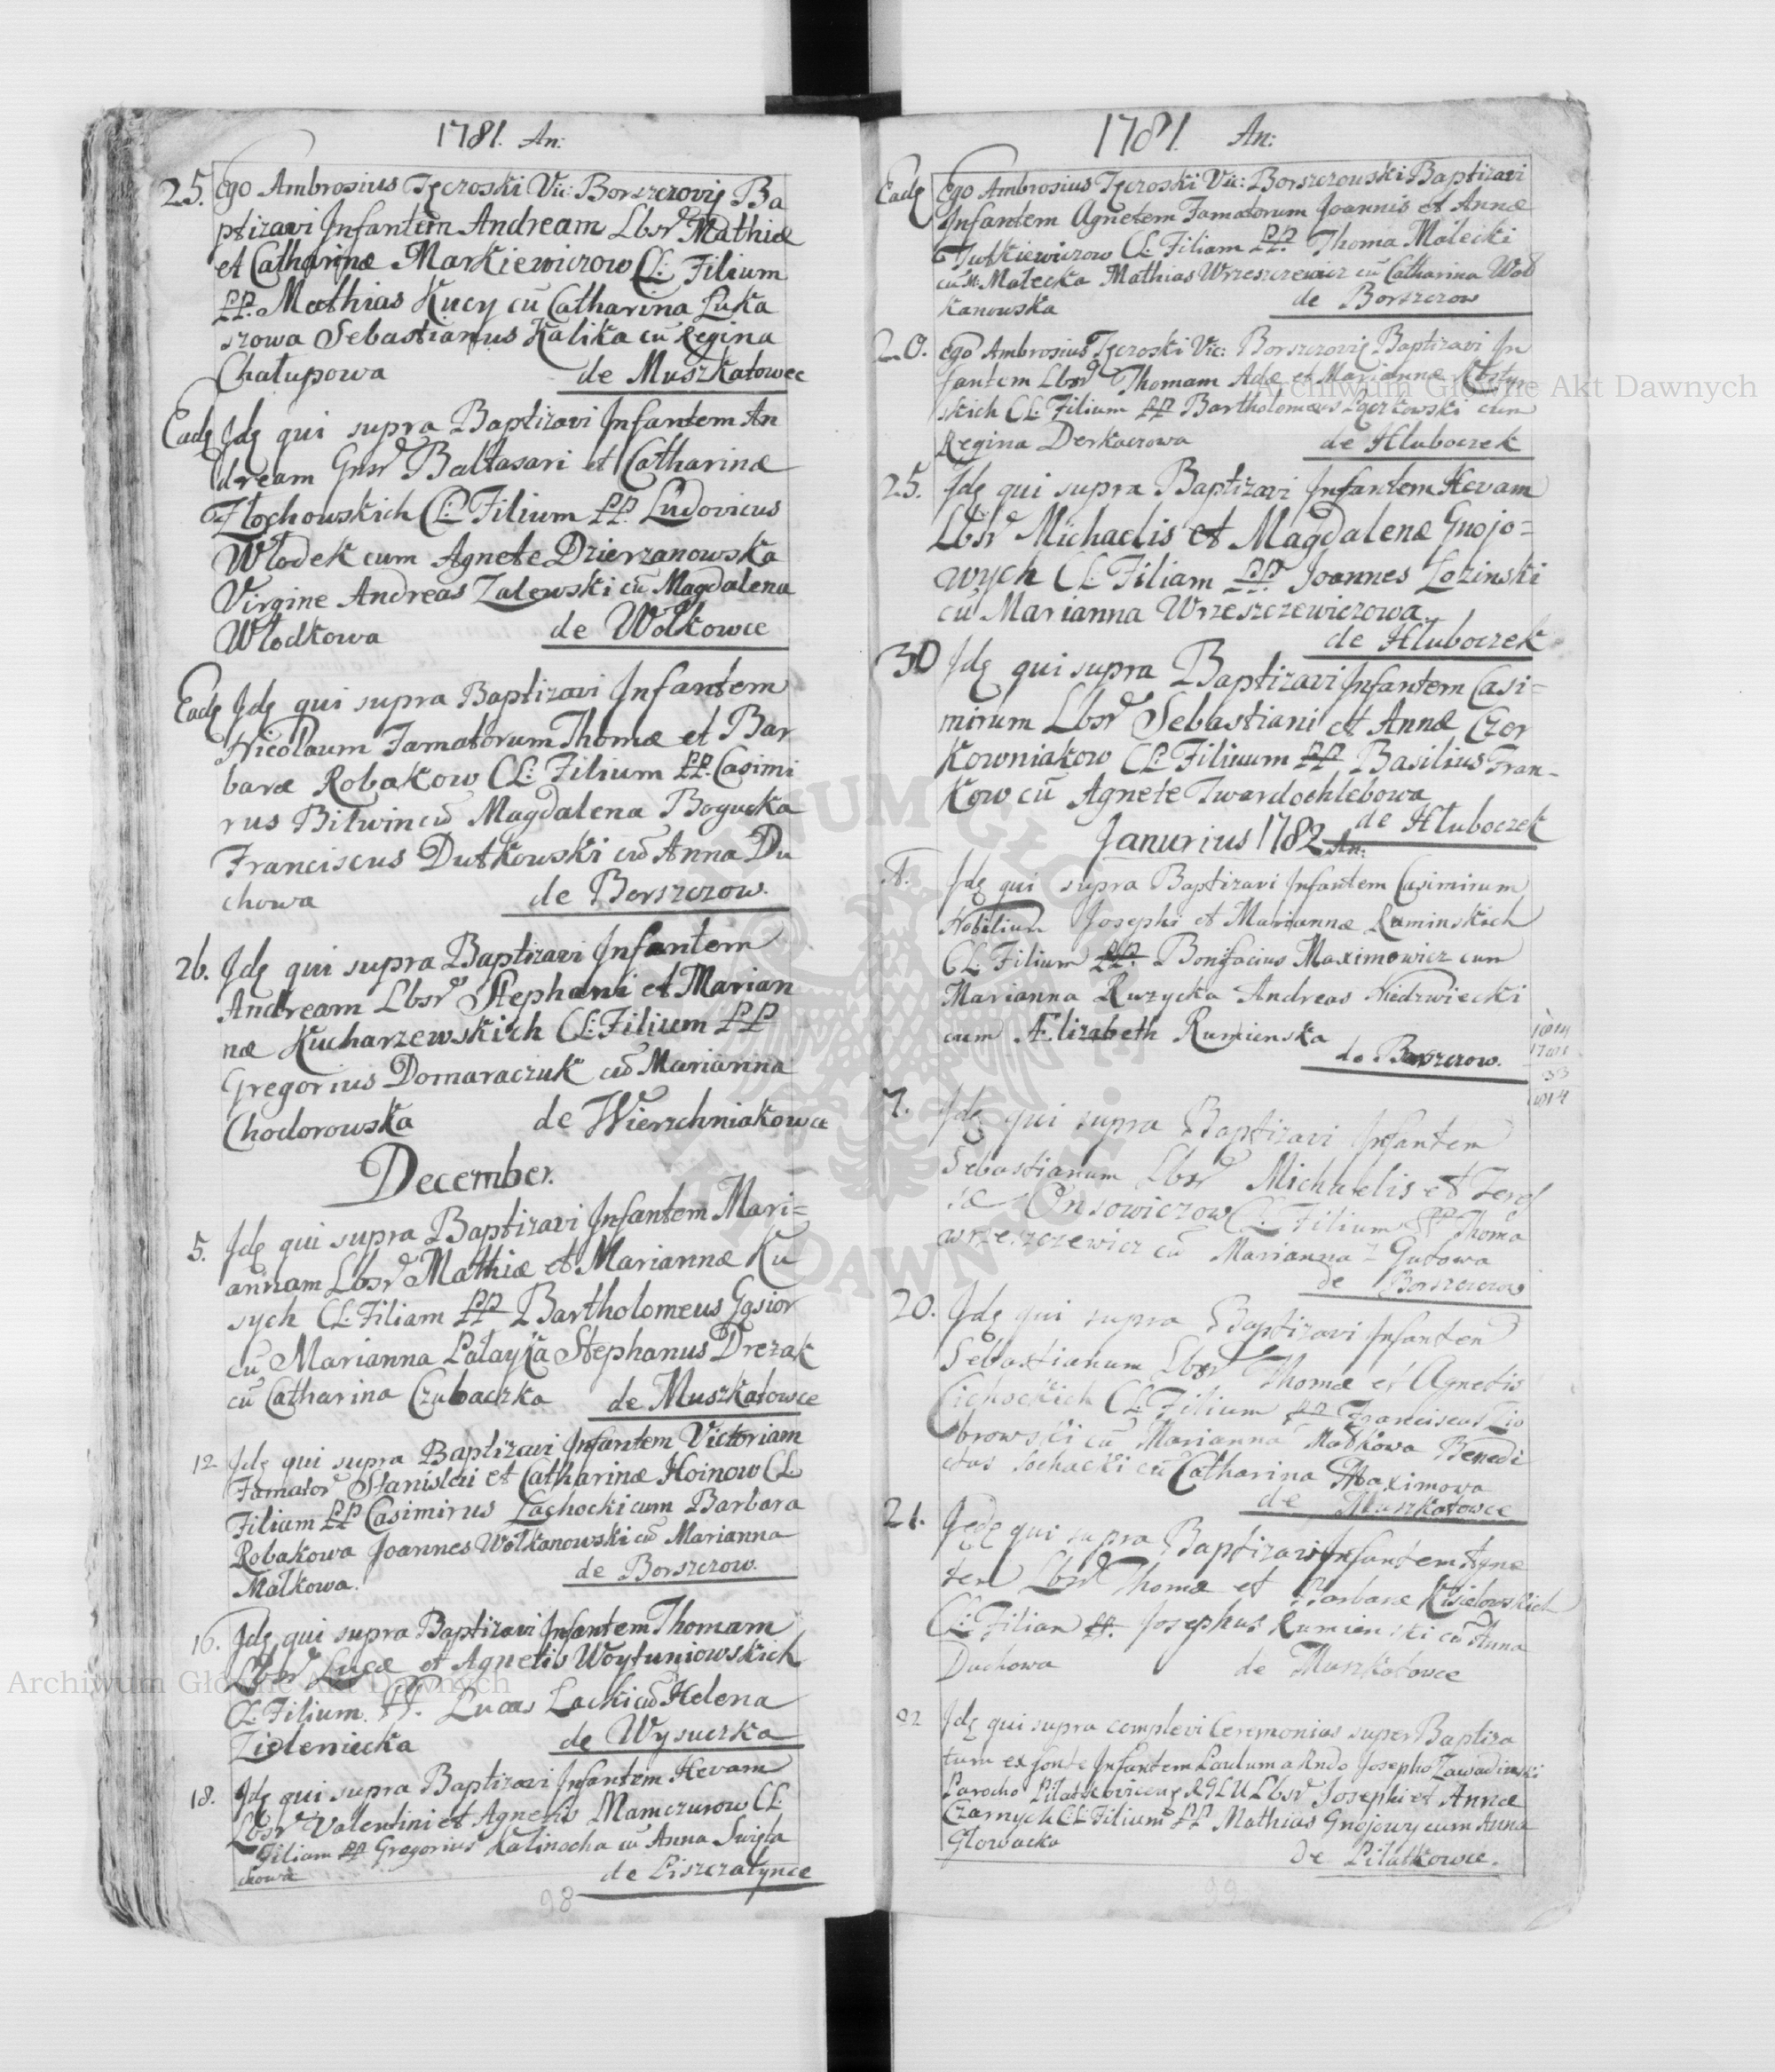 1781. An:
25. Ego Ambrosius Vic: Borszczoviẽ Ba
ptizavi Infantem Andream Lbsr̃ Mathiæ
et Catharinæ Markiewiczow CL: Filium
PP. Mathias Kucy cũ Catharina Łuka
szowa Sebastianus Kalika cũ Regina
Chałupowa de Muszkatowce
Eadẽ Idẽ qui supra Baptizavi Infantem An
dream Gnsr̃ Baltasari et Catharinæ
Złochowskich CL: Filium PP. Ludovicus
Włodek cum Agnete Dzierzanowska
Virgine Andreas Zalewski cũ Magdalena
Włodkowa de Wołkowce
Eadẽ Idẽ qui supra Baptizavi Infantem
Nicolaum Famatorum Thomæ et Bar
baræ Robakow CL: Filium PP. Casimi
rus Bitwin cũ Magdalena Bogucka
Franciscus Dutkowski cũ Anna Du
chowa de Borszczow.
26. Idẽ qui supra Baptizavi Infantem
Andream Lbsr̃ Stephani et Marian
næ Kucharzewskich CL: Filium PP
Gregorius Domaraczuk cũ Marianna
Chodorowska de Wierzchniakowce
December.
5. Idẽ qui supra Baptizavi Infantem Mari=
annam Lbsr̃ Mathiæ et Mariannæ Ku
sych CL: Filiam PP Bartholomeus Gąsior
cũ Marianna Stephanus Drezak
cũ Catharina Czubaczka de Muszkatowce
12 Idẽ qui supra Baptizavi Infantem Victoriam
Famator̃ Stanislai et Catharinæ Hoinow CL:
Filiam PP Casimirus Łachocki cum Barbara
Robakowa Joannes Wołkanowski cũ Marianna
Małkowa. de Borszczow.
16. Idẽ qui supra Baptizavi Infantem Thomam
Lbsr̃ Lucæ et Agnetis Woytuniowskich
CL: Filium. PP. Lucas Lacki cũ Helena
Zieleniecka de Wysuczka
18. Idẽ qui supra Baptizavi Infantem Hevam
Lbsr̃ Valentini et Agnetis Mamczurow CL:
Filiam PP Gregorius Kalinocha cũ Anna
chowa de Piszczatynce
98
1781. An:
Eadẽ Ego Ambrosius Vic: Borszczowski Baptizavi
Infantem Agnetem Famatorum Joannis et Annæ
CL: Filiam PP. Thoma Małecki
Małecka Mathias Wrzeszczewicz cũ Catharina Woł
kanowska de Borszczow
20. Ego Ambrosius Vic: Borszczoviẽ Baptizavi In
fantem Lbsr̃ Thomam Adæ et Mariannæ
skich CL: Filium PP Bartholomeus cum
Regina Derkaczowa de Hluboczek
25. Idẽ qui supra Baptizavi Infantem Hevam
Lbsr̃ Michaelis et Magdalenæ Gnojo=
wych CL: Filiam PP Joannes Łozinski
cũ Marianna Wrzeszczewiczowa
de Hluboczek
30 Idẽ qui supra Baptizavi Infantem Casi=
mirum Lbsr̃ Sebastiani et Annæ Czer
Kowniakow CL: Filiuum PP Basilius Fran-
Kow cũ Agnete Twardochlebowa
de Hluboczek
Janurius 1782 An:
Idẽ qui supra Baptizavi Infantem Casimirum
Nobilium Josephi et Mariannæ Ruminskich
CL: Filium PP. Bonifacius Maximowicz cum
Marianna Ruzycka Andreas Niedzwiecki
cum Ælizabeth Rumienska
de Borszczow.
7. Idẽ qui supra Baptizavi Infantem
Sebastianum Lbsr̃ Michaelis et Teres
iæ CL: Filium PP Thoma
wrzeszczewicz cũ Marianna Gutowa
de Borszczow
20. Idẽ qui supra Baptizavi Infantem
Sebastianum Lbsr̃ Thomæ et Agnetis
Cichockich CL: Filium PP Franciscus Zio
browski cũ Marianna Małkowa Benedi
ctus Sochacki cũ Catharina Maximowa
de Muszkatowce
21. Idẽ qui supra Baptizavi Infantem Agne
tem Lbsr̃ Thomæ et Barbaræ Kisielowskich
CL: Filiam PP. Josephus Rumienski cũ Anna
Duchowa de Muszkatowce
22 Idẽ qui supra complevi Ceremonias super Baptiza
tum ex fonte Infantem Paulum a Rndo Josepho
Parocho Lbsr̃ Josephi et Annæ
Czarnych CL: Filium PP Mathias Gnojowy cum Anna
Głowacka de Piłatkowce.
99
Archiwum Główne Akt Dawnych
Archiwum Główne Akt Dawnych
ARCHIWUM GŁÓWNE AKT DAWNYCH